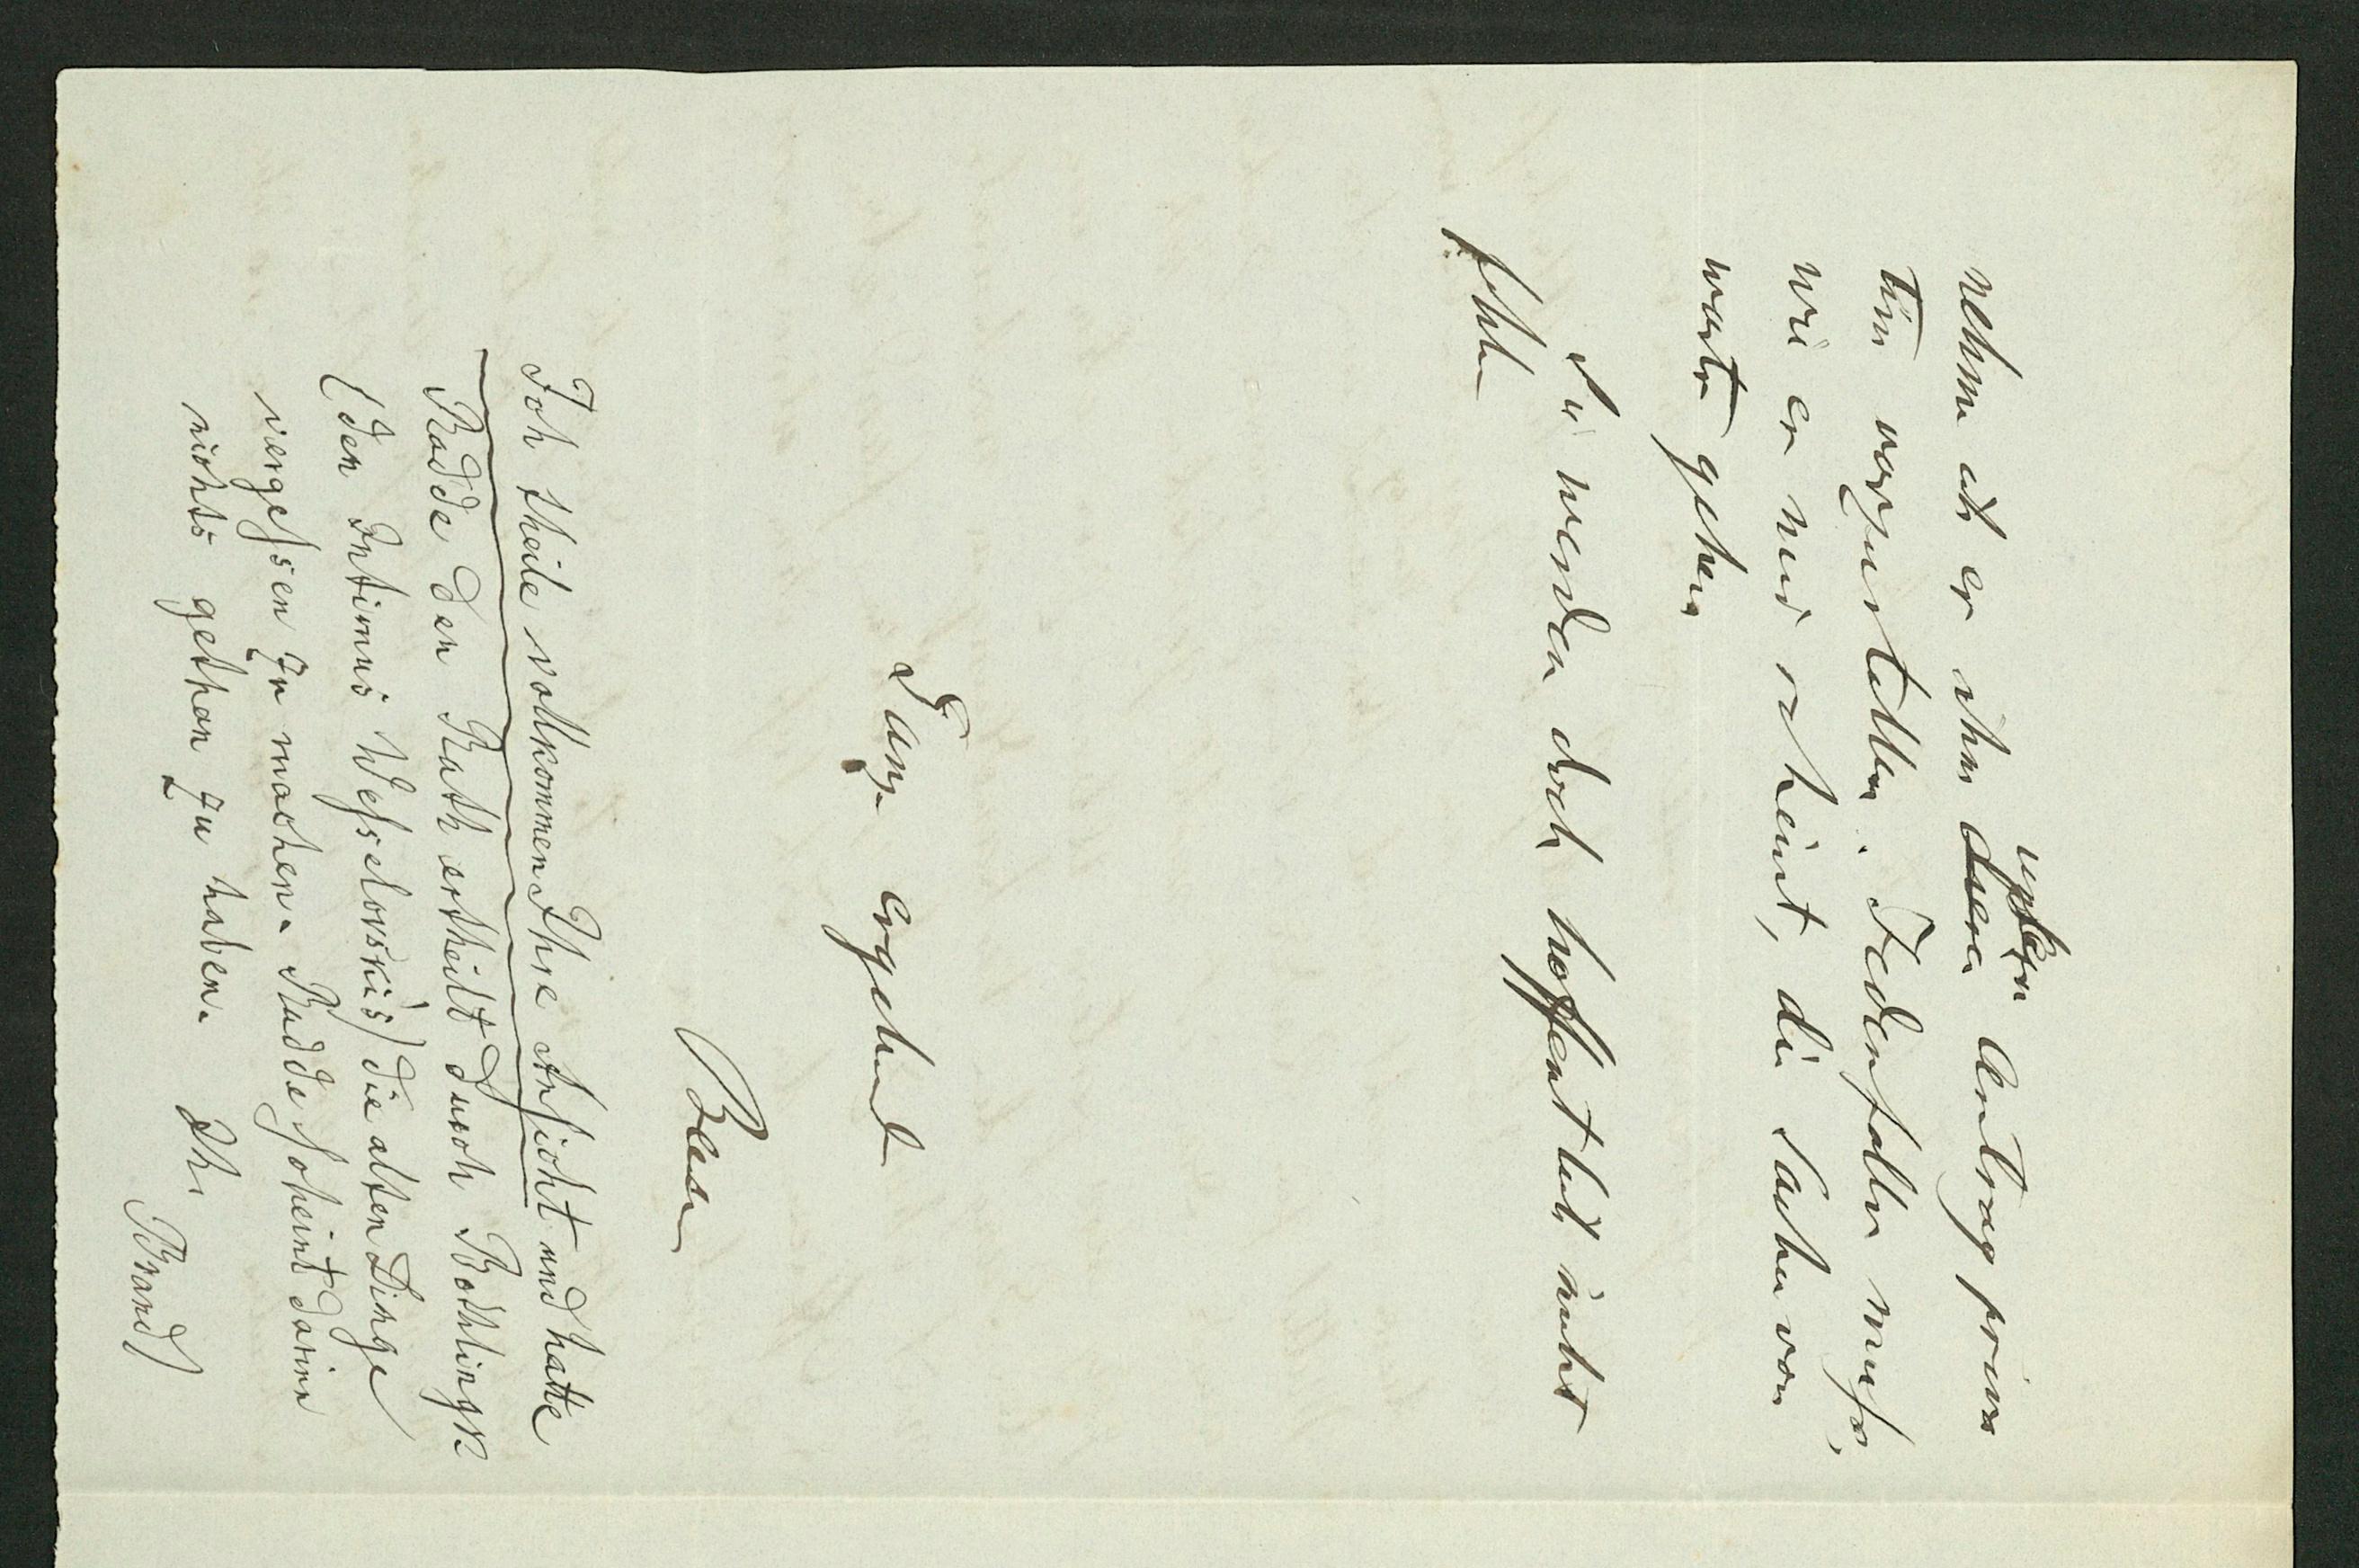 nehme als er ihm ersten Antrag priva
tim vorzustellen. Jedenfalls muß,
wie er mir scheint, die Sache von
warte gehen
Sie werden doch hoffentlich nicht
fehlen
Ganz ergebenst
Baer
Ich theile vollkommen Ihre Ansicht und hatte
Radde den Rath ertheilt durch Boehtlingk
(den Intimus Wesselowski's) die alten Dinge
vergessen zu machen. Radde scheint darin
nichts gethan zu haben. Ihr
Brandt